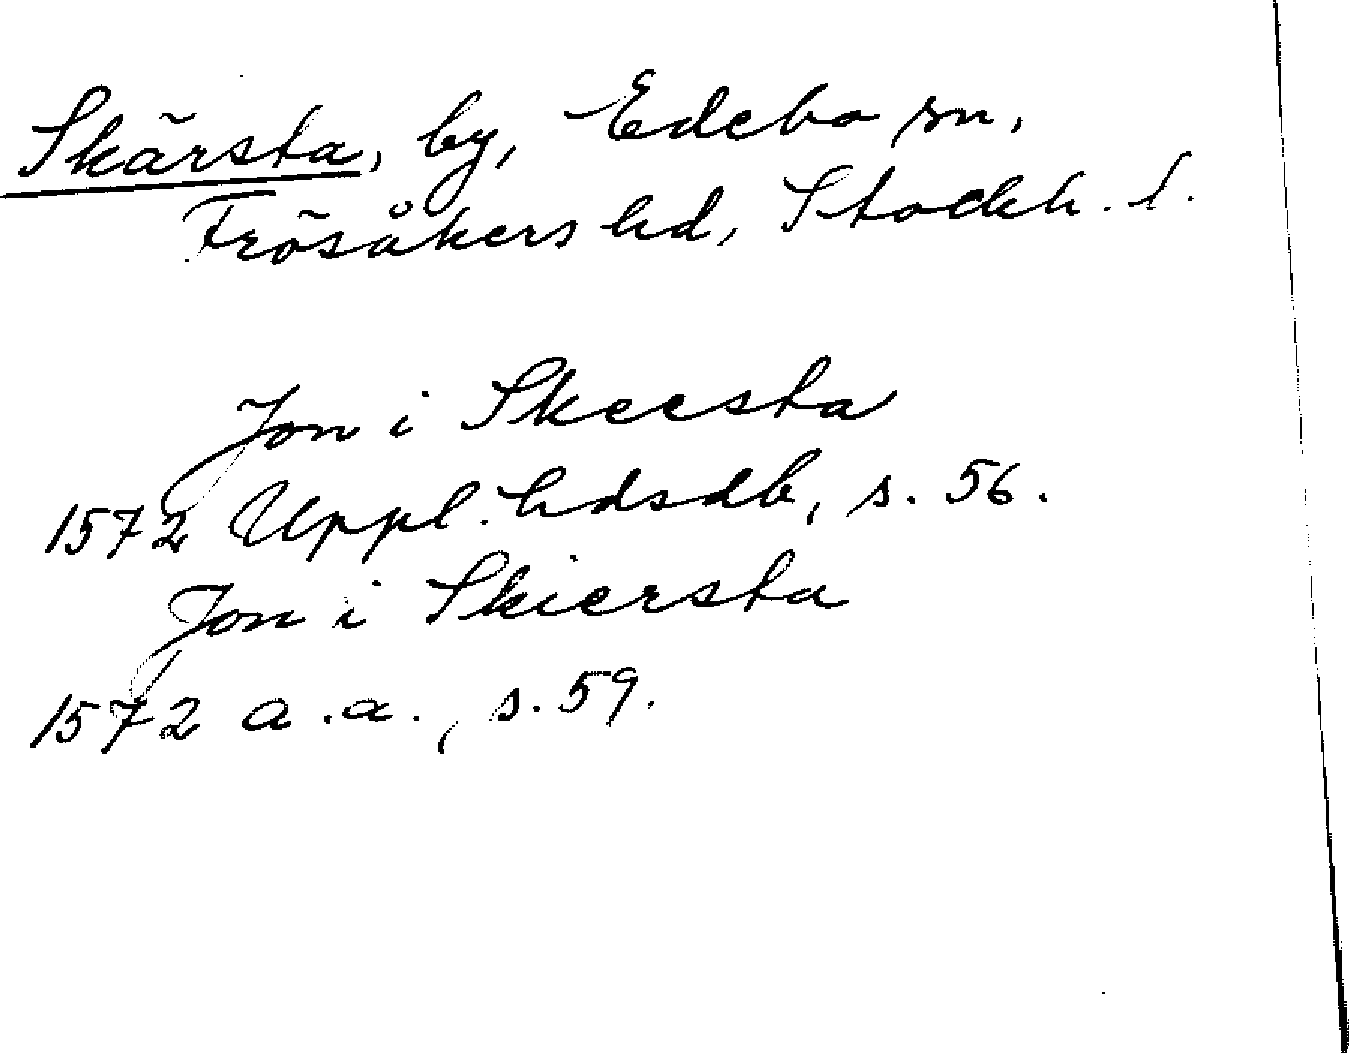 Skärsta, by, Edebo sn,
Frösåkers hd, Stockh. l.
Jon i Skeesta
1572 Uppl. hdsdb, s. 56.
Jon i Skiersta
1572 a.a., s. 59.